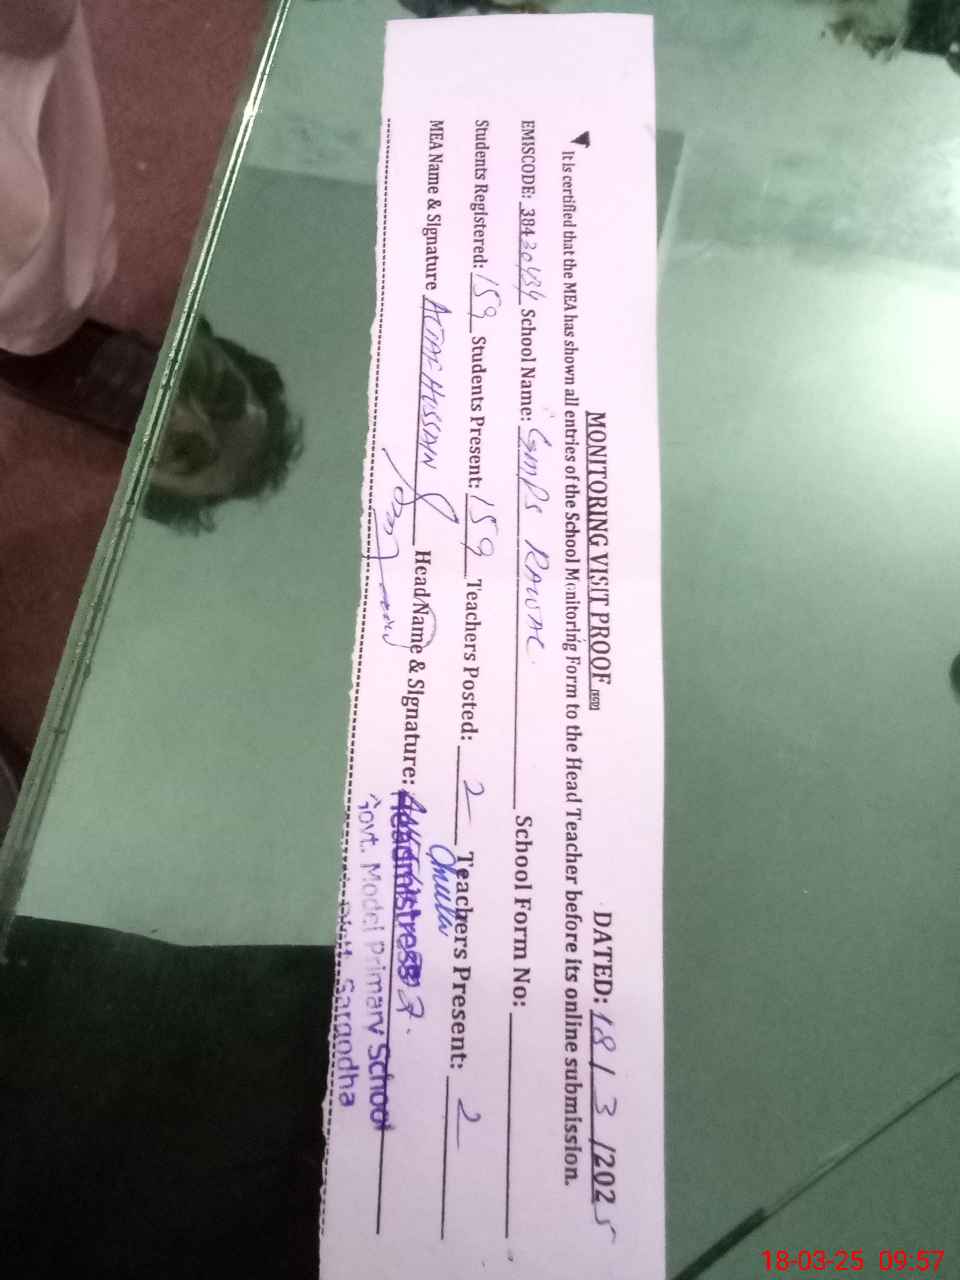 MONITORING VISIT PROOF DATED: 18/3/2025
It is certified that the MEA has shown all entries of the School Monitoring Form to the Head Teacher before its online submission.
EMISCODE: 38430434 School Name: GMPS RAWAL School Form No:
Students Registered: 159 Students Present: 159 Teachers Posted: 2 Teachers Present: 2
MEA Name & Signature ALTAF HUSSAIN Head Name & Signature:
Headmistress
Govt. Model Primary School
Sargodha
18-03-25 09:57